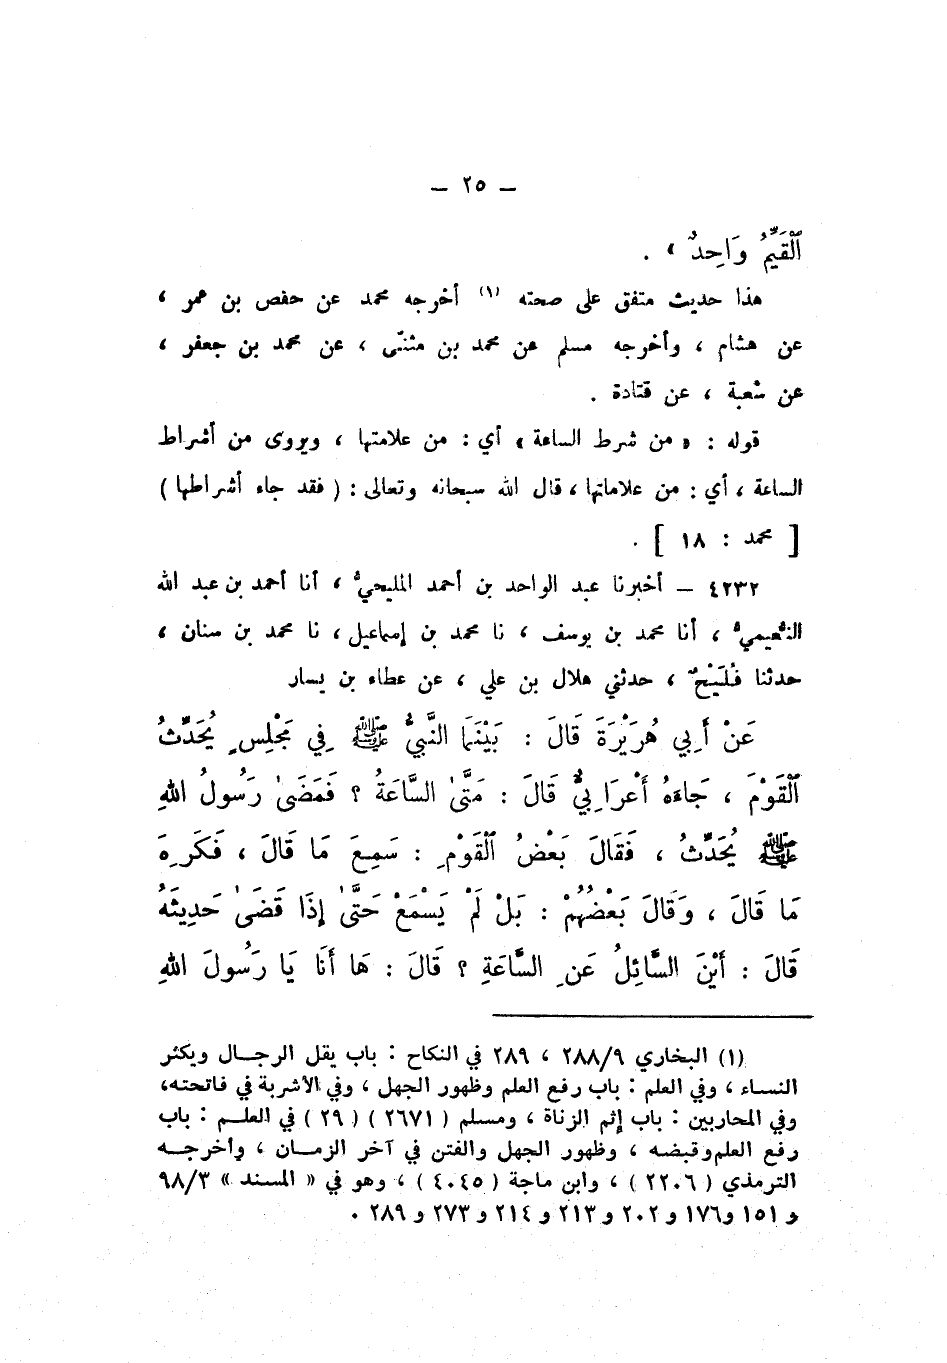 – ٢٥ –
ٱلْقَيِّمُ وَاحِدٌ » .
هذا حديث متفق على صحته (١) أخرجه محمد عن حفص بن عمر ،
عن هشام ، وأخرجه مسلم عن محمد بن مثنّى ، عن محمد بن جعفر ،
عن شعبة ، عن قتادة .
قوله : « من شرط الساعة » أي : من علامتها ، ويروى من أشراط
الساعة ، أي : من علاماتها ، قال الله سبحانه وتعالى : ( فقد جاء أشراطها )
[ محمد : ١٨ ] .
٤٢٣٢ – أخبرنا عبد الواحد بن أحمد المليحيُّ ، أنا أحمد بن عبد الله
النُّعيميُّ ، أنا محمد بن يوسف ، نا محمد بن إسماعيل ، نا محمد بن سنان ،
حدثنا فُلَيْحٌ ، حدثني هلال بن علي ، عن عطاء بن يسار
عَنْ أَبِي هُرَيْرَةَ قَالَ : بَيْنَمَا النَّبِيُّ ﷺ فِي مَجْلِسٍ يُحَدِّثُ
ٱلْقَوْمَ ، جَاءَهُ أَعْرَابِيٌّ قَالَ : مَتَىٰ السَّاعَةُ ؟ فَمَضَىٰ رَسُولُ اللهِ
ﷺ يُحَدِّثُ ، فَقَالَ بَعْضُ ٱلْقَوْمِ : سَمِعَ مَا قَالَ ، فَكَرِهَ
مَا قَالَ ، وَقَالَ بَعْضُهُمْ : بَلْ لَمْ يَسْمَعْ حَتَّىٰ إِذَا قَضَىٰ حَدِيثَهُ
قَالَ : أَيْنَ السَّائِلُ عَنِ السَّاعَةِ ؟ قَالَ : هَا أَنَا يَا رَسُولَ اللهِ
(١) البخاري ٢٨٨/٩ ، ٢٨٩ في النكاح : باب يقل الرجال ويكثر
النساء ، وفي العلم : باب رفع العلم وظهور الجهل ، وفي الأشربة في فاتحته،
وفي المحاربين : باب إثم الزناة ، ومسلم ( ٢٦٧١ ) ( ٢٩ ) في العلم : باب
رفع العلم وقبضه ، وظهور الجهل والفتن في آخر الزمان ، وأخرجه
الترمذي ( ٢٢٠٦ ) ، وابن ماجة ( ٤٠٤٥ ) ، وهو في « المسند » ٩٨/٣
و ١٥١ و١٧٦ و ٢٠٢ و ٢١٣ و ٢١٤ و ٢٧٣ و ٢٨٩ .